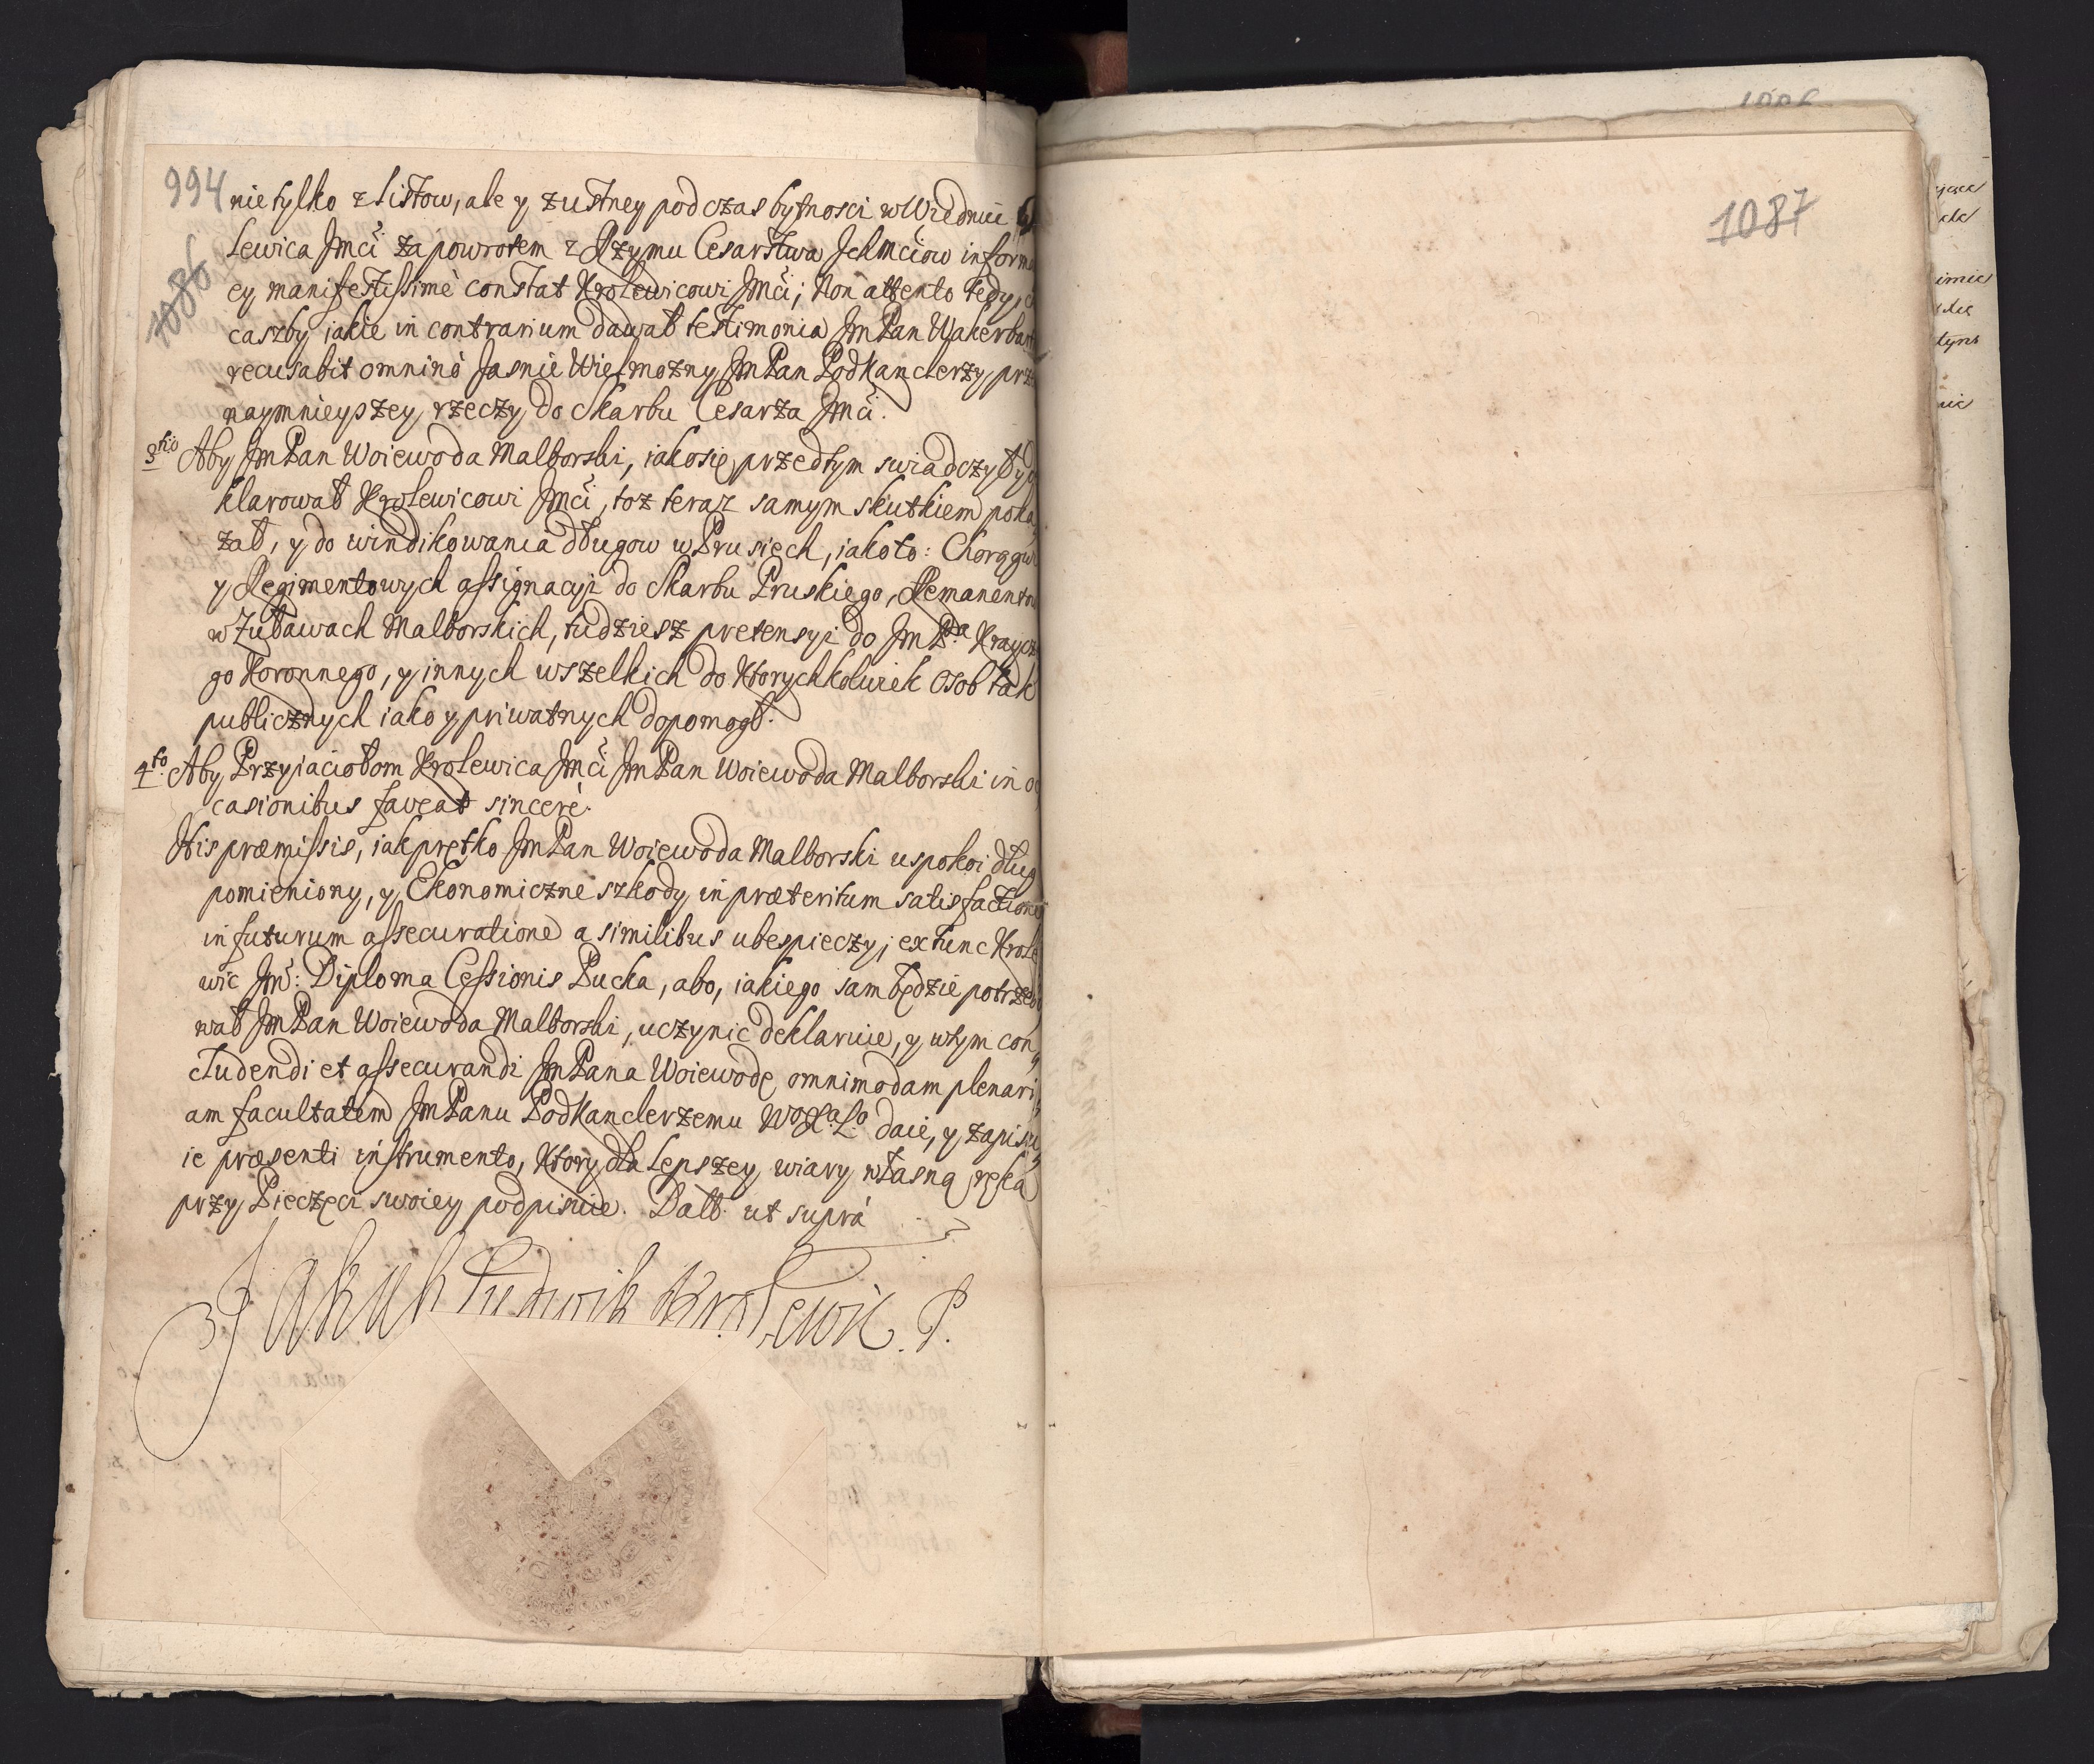 994
1086
nie tylko z listow, ale y z ustney pod czas bytnosci w Wiedniu
lewica Jmći za powrotem z Rzymu Cesarstwa Jchmciow informa
ey manifestissimè constat Krolewicowi Jmći; Non attento tedy,
caszby jakie in contrarium dawał testimonia JmPan Wakerbart
recusabit omninò Jasnie Wielmozny JmPan Podkanclerzy prze
naymnieyszey rzeczy do Skarbu Cesarza Jmći.
3tio Aby JmPan Woiewoda Malborski, iako się przedtym swiadczył y
klarował Krolewicowi Jmći, toz teraz samym skutkiem poka
zał, y do windikowania długow w Prusiech, iako to: Chorągwi
y Regimentowych assignacyi do Skarbu Pruskiego, Remanentow
w Zuławach Malborskich, tudziesz pretensyi do JmPna Kraycze
go Koronnego, y innych wszelkich do Ktorychkolwiek osob tak
publicznych iako y priwatnych dopomogł.
4to. Aby Przyiaciołom Krolewica Jmći JmPan Woiewoda Malborski in oc
casionibus faveat sincerè.
His præmissis, iak prętko JmPan Woiewoda Malborski uspokoi dług
pomieniony, y Ekonomiczne szkody in præteritum satisfactione
in futurum assecuratione a similibus ubespieczy; ex tunc Krole
wic Jmć: Diploma Cessionis Pucka, abo, iakiego sam będzie potrzebo
wał JmPan Woiewoda Malborski, uczynic deklaruie, y w tym con,
cludendi et assecurandi JmPana Woiewodę omnimodam plenari,
am facultatem JmPanu Podkanclerzemu Wo Xa Lo daie, y zapisu,
ie præsenti instrumento, Ktory dla lepszey wiary własną ręką
przy Pieczęci swoiey podpisuie. Datt. ut suprà
Jakub Ludwik Krolewic. P.
1087